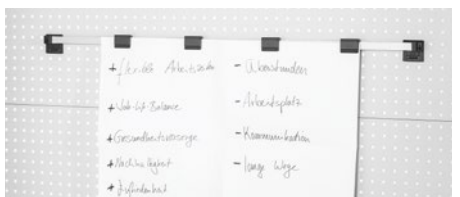 + flexible Arbeitszeiten
+ Work-Life-Balance
+ Gesundheitsvorsorge
+ Nachhaltigkeit
+ Zufriedenheit
- Überstunden
- Arbeitsplatz
- Kommunikation
- lange Wege